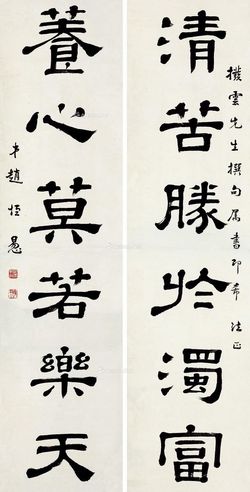 清苦勝於濁富
撥雲先生撰句屬書即希法正
養心莫若樂天
弟趙恒惖